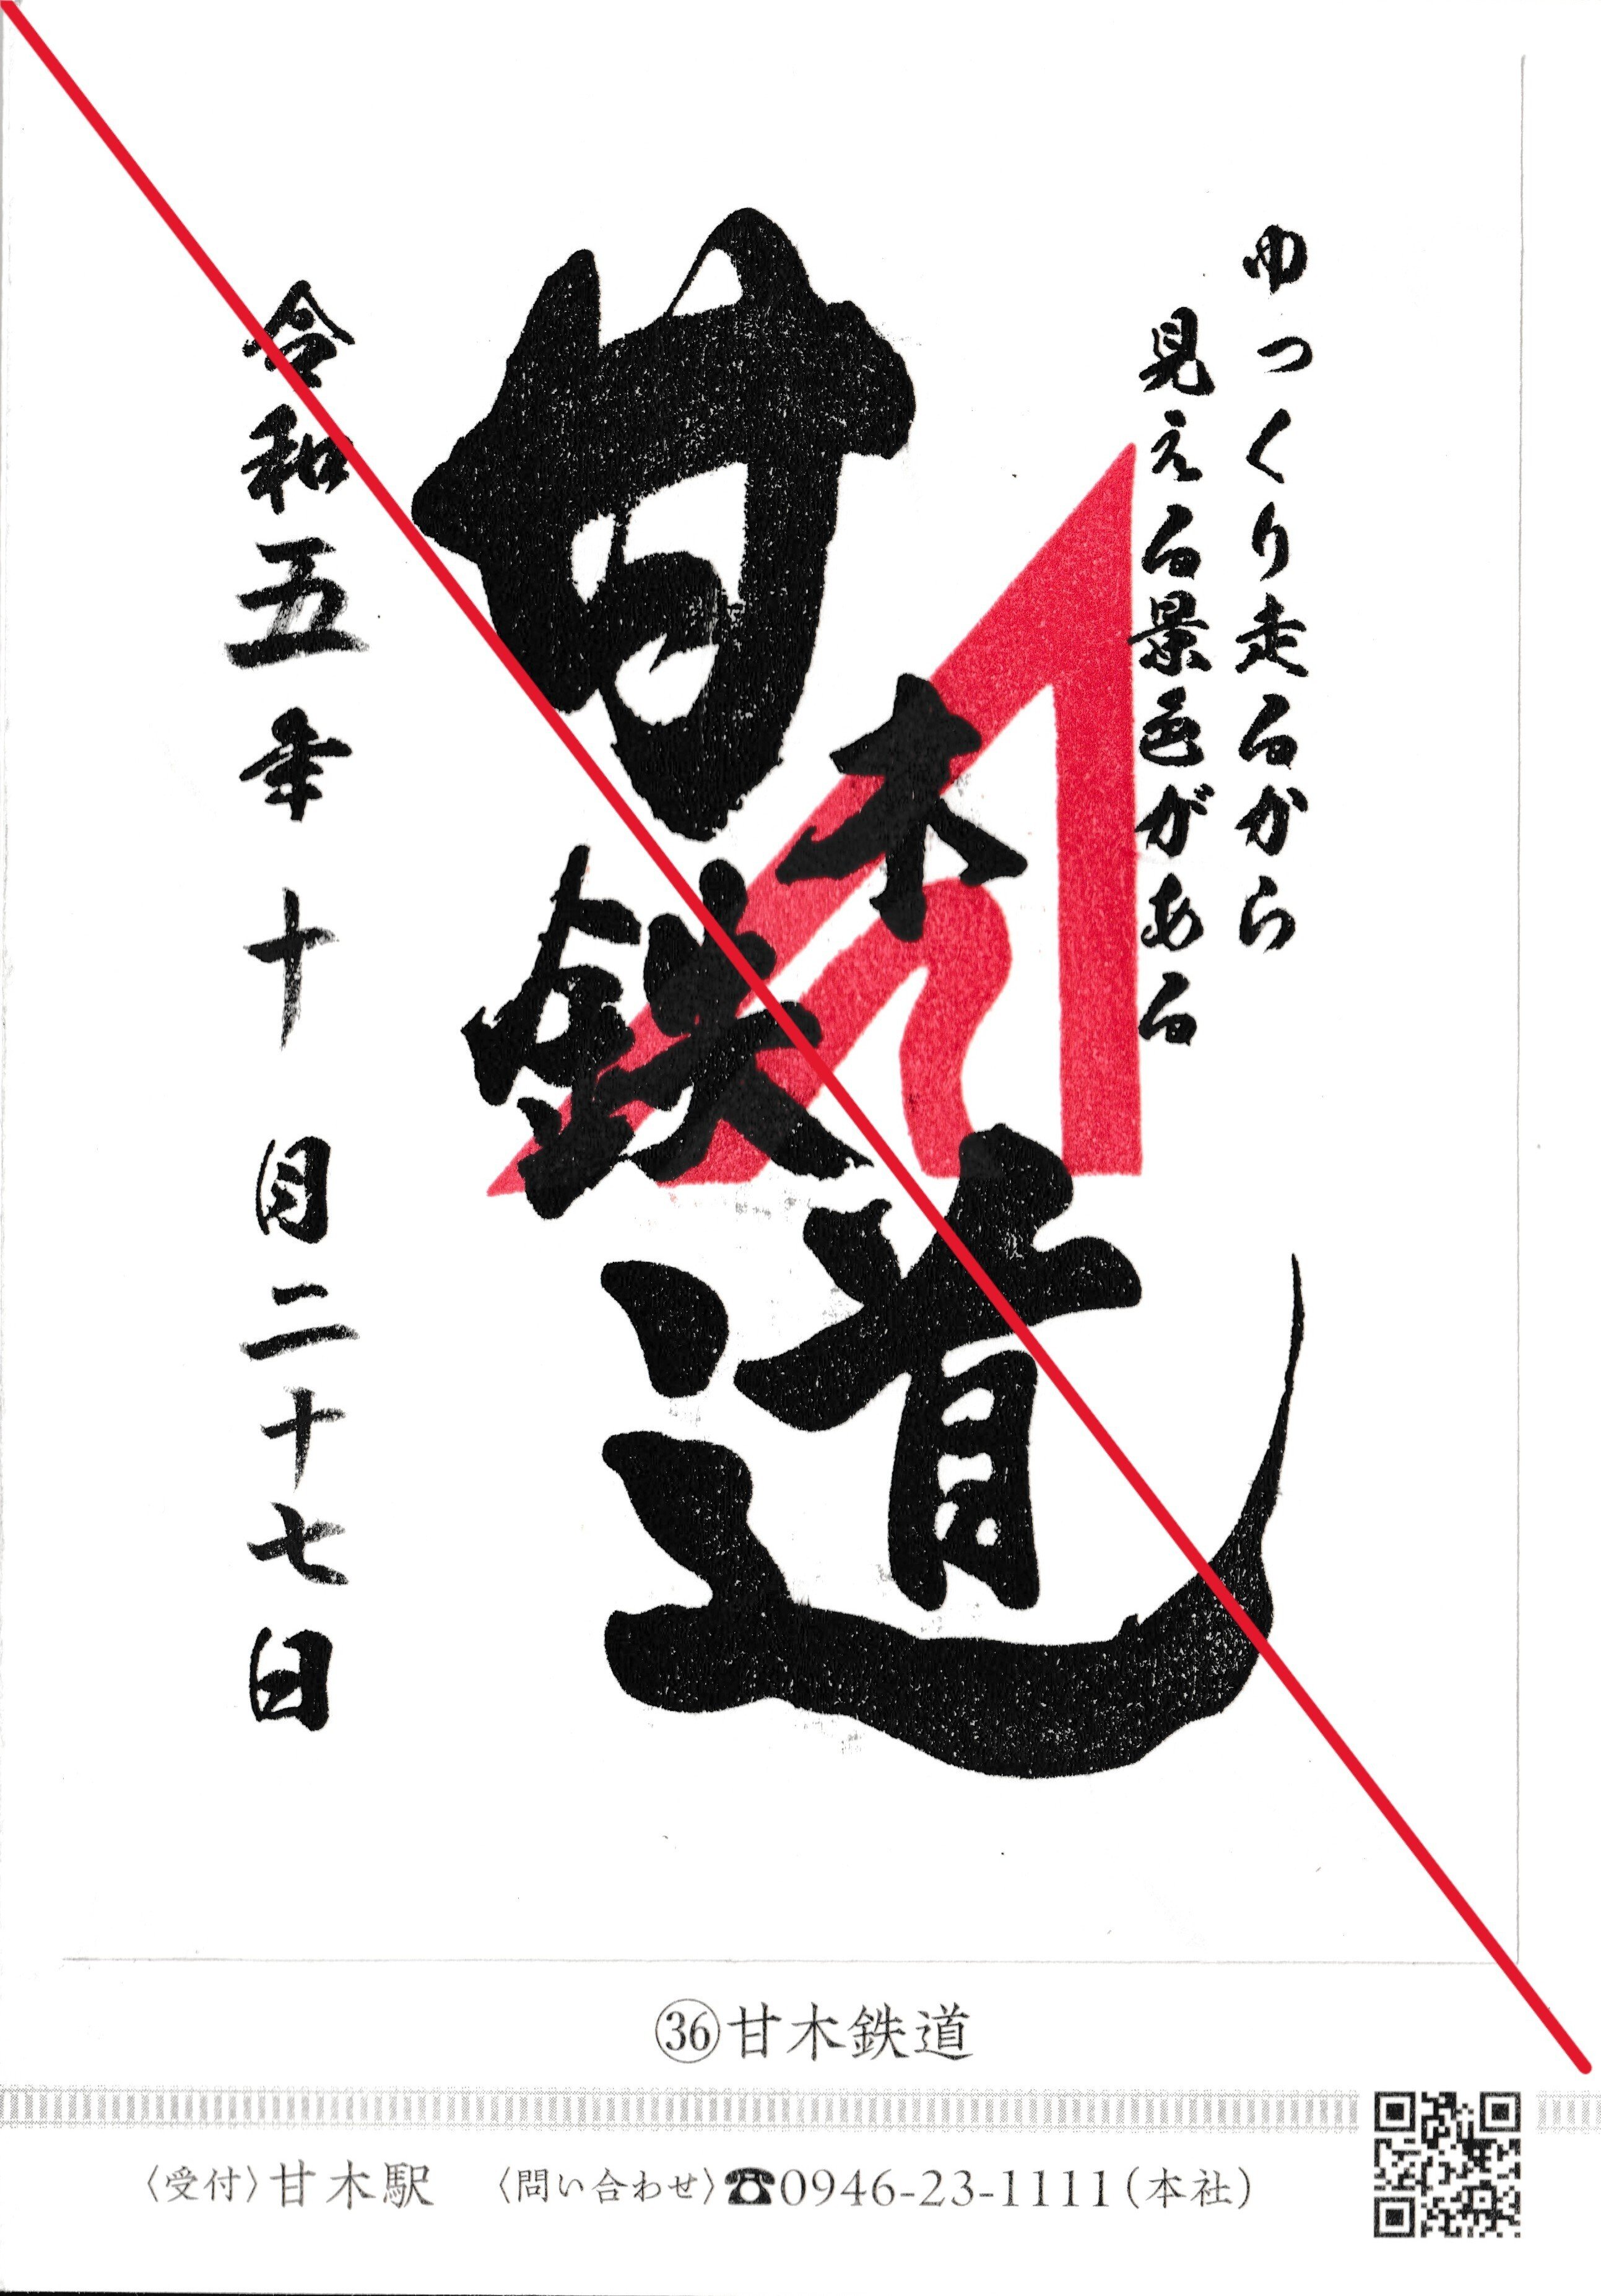 ゆっくり走るから
見える景色がある
甘木鉄道
令和五年十月二十七日
㊱甘木鉄道
〈受付〉甘木駅 〈問い合わせ〉☎0946-23-1111(本社)